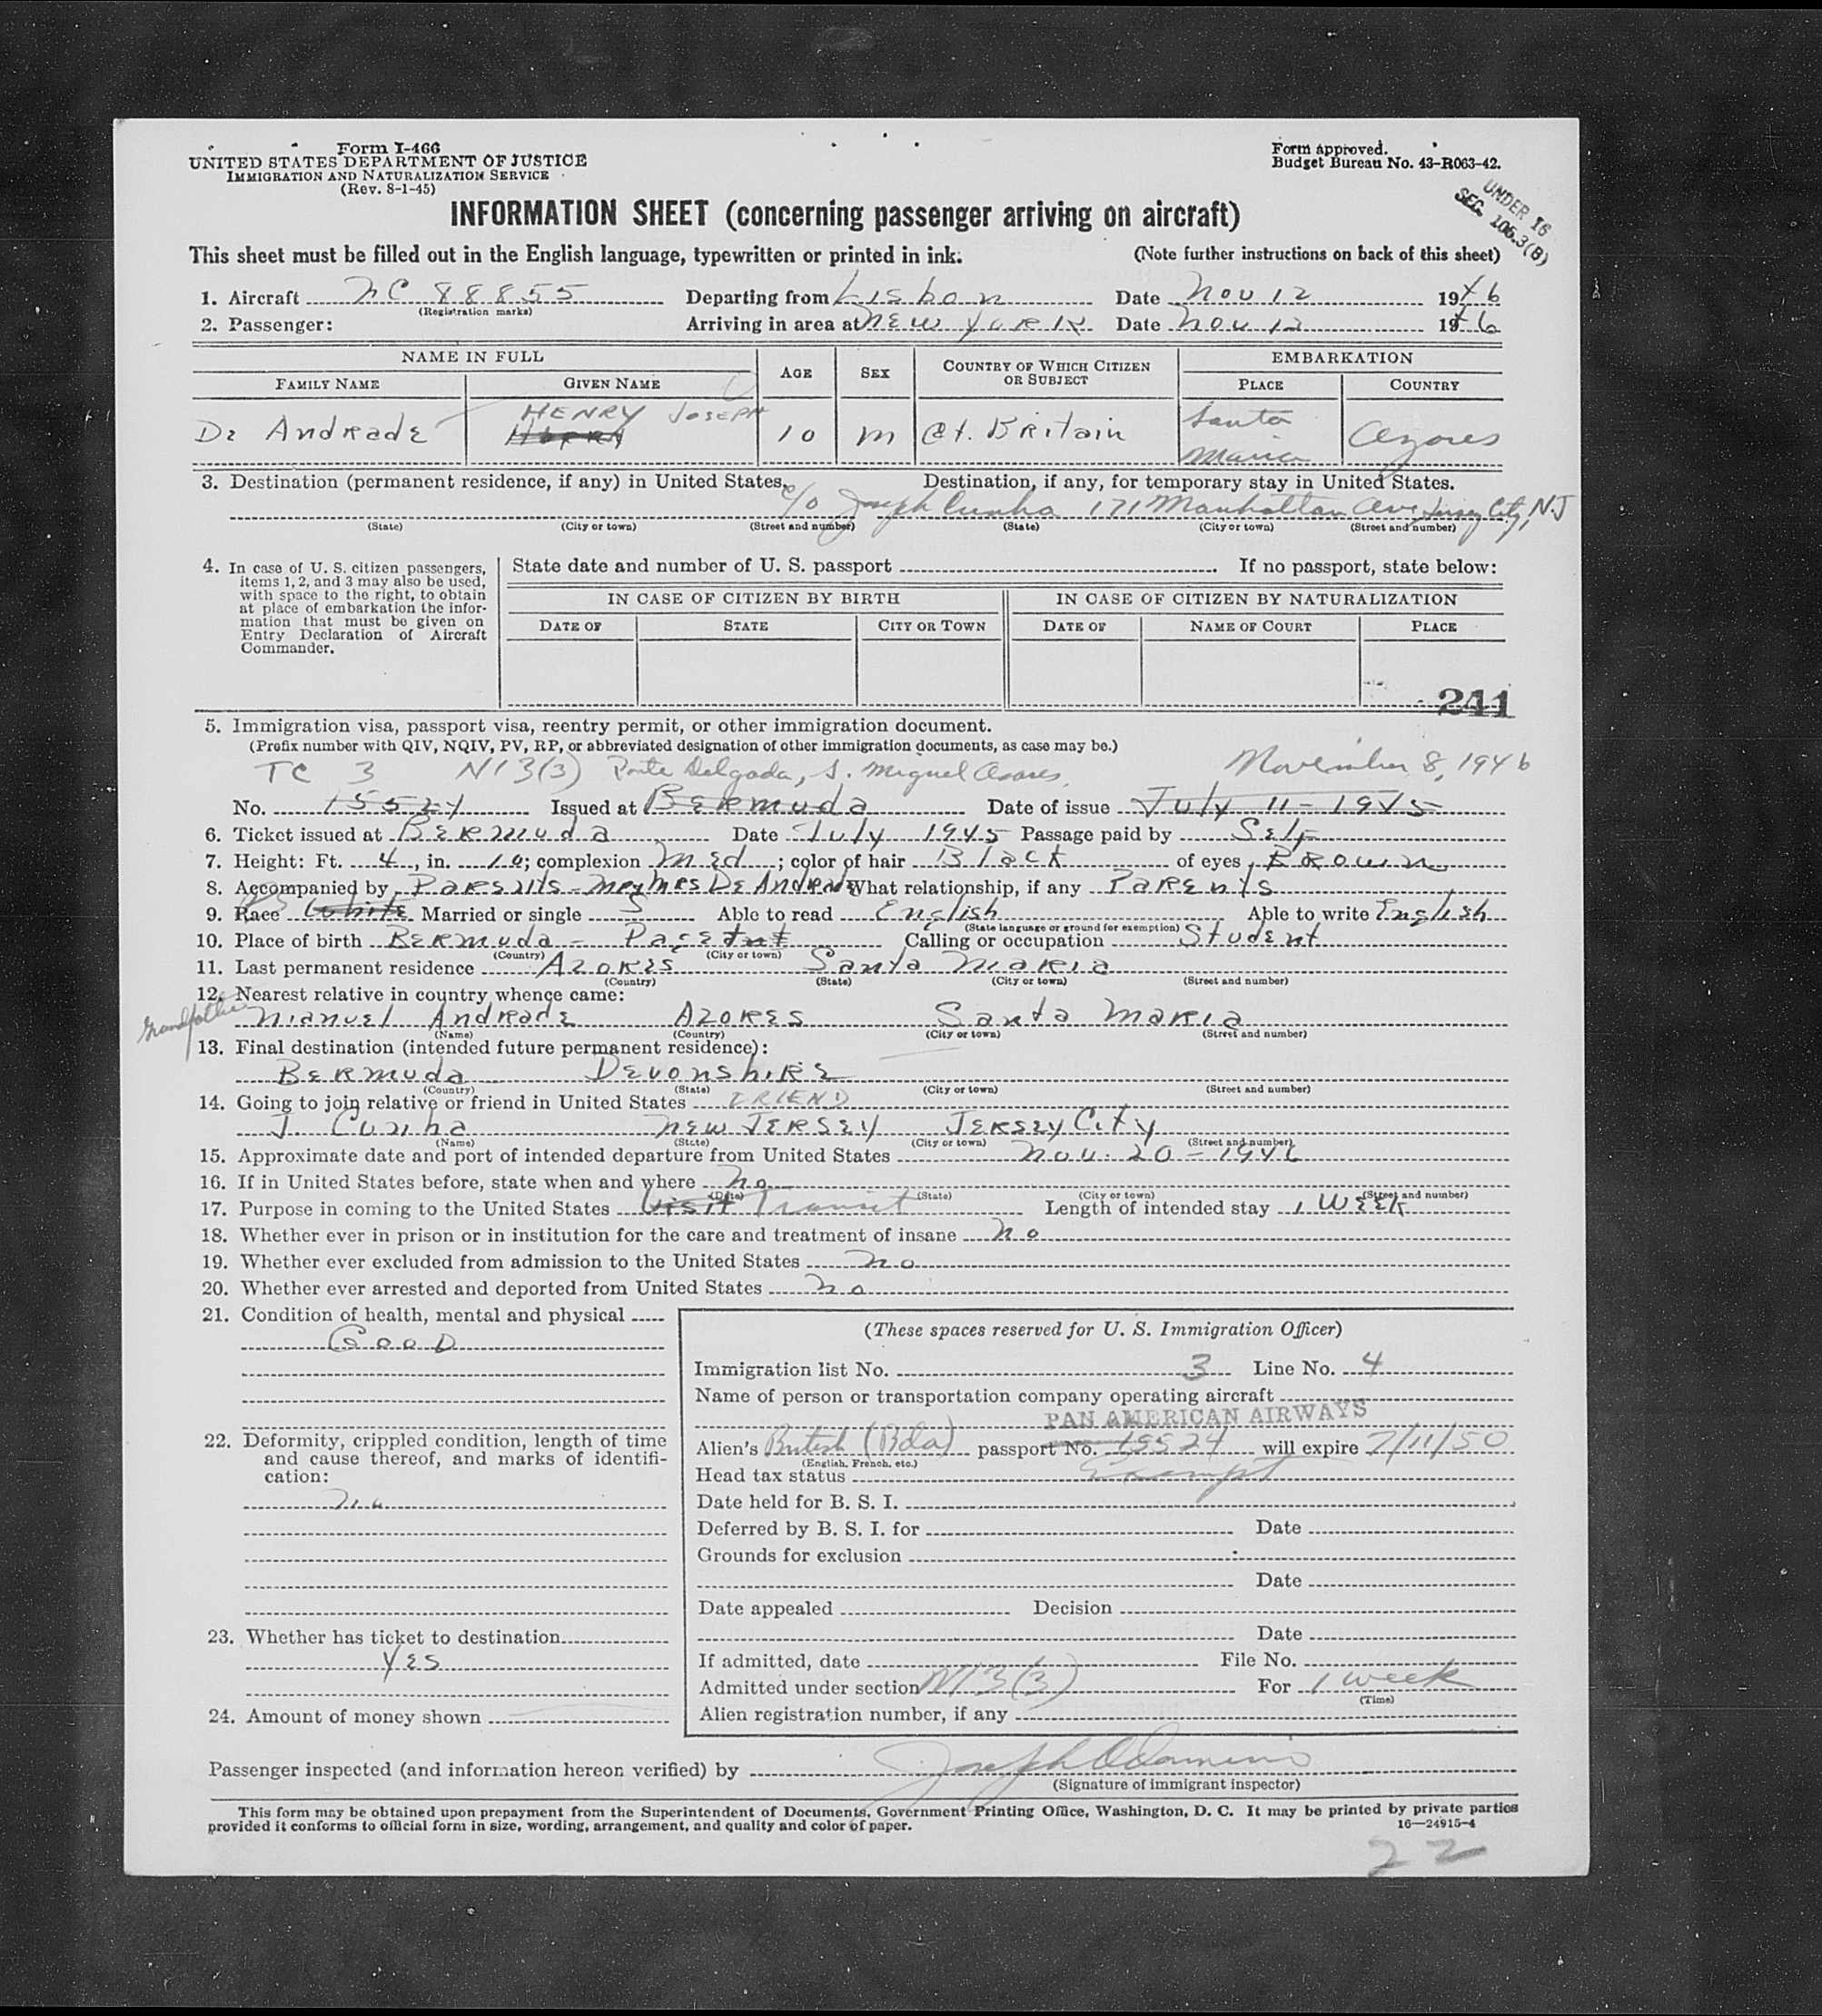 Form I-466
UNITED STATES DEPARTMENT OF JUSTICE
IMMIGRATION AND NATURALIZATION SERVICE
(Rev. 8-1-45)
Form approved.
Budget Bureau No. 43-R063-42.
UNDER 16
SEC. 105.3(B)
INFORMATION SHEET (concerning passenger arriving on aircraft)
This sheet must be filled out in the English language, typewritten or printed in ink. (Note further instructions on back of this sheet)
1. Aircraft NC 88855 Departing from Lisbon Date Nov 12 1946
(Registration marks)
2. Passenger: Arriving in area at New York Date Nov 12 1946
NAME IN FULL AGE SEX COUNTRY OF WHICH CITIZEN OR SUBJECT EMBARKATION
FAMILY NAME GIVEN NAME PLACE COUNTRY
HENRY JOSEPH Santa
De Andrade 10 M Gt. Britain Maria Azores
3. Destination (permanent residence, if any) in United States. Destination, if any, for temporary stay in United States.
c/o Joseph Cunha 171 Manhattan Ave, Jersey City, N.J
(State) (City or town) (Street and number) (State) (City or town) (Street and number)
4. In case of U. S. citizen passengers, items 1, 2, and 3 may also be used, with space to the right, to obtain at place of embarkation the information that must be given on Entry Declaration of Aircraft Commander.
State date and number of U. S. passport If no passport, state below:
IN CASE OF CITIZEN BY BIRTH IN CASE OF CITIZEN BY NATURALIZATION
DATE OF STATE CITY OR TOWN DATE OF NAME OF COURT PLACE
241
5. Immigration visa, passport visa, reentry permit, or other immigration document.
(Prefix number with QIV, NQIV, PV, RP, or abbreviated designation of other immigration documents, as case may be.)
TC 3 N13(3) Ponte Delgada, S. Miguel Azores, November 8, 1946
No. 15524 Issued at Bermuda Date of issue July 11-1945
6. Ticket issued at Bermuda Date July 1945 Passage paid by Self
7. Height: Ft. 4, in. 10; complexion Med; color of hair Black of eyes Brown
8. Accompanied by Parents - Mr & Mrs De Andrade What relationship, if any Parents
9. Race White Married or single S Able to read English Able to write English
(State language or ground for exemption)
10. Place of birth Bermuda - Calling or occupation Student
(Country) (City or town)
11. Last permanent residence Azores Santa Maria
(Country) (State) (City or town) (Street and number)
12. Nearest relative in country whence came:
Grandfather Manuel Andrade Azores Santa Maria
(Name) (Country) (City or town) (Street and number)
13. Final destination (intended future permanent residence):
Bermuda Devonshire
(Country) (State) (City or town) (Street and number)
14. Going to join relative or friend in United States FRIEND
J. Cunha New Jersey Jersey City
(Name) (State) (City or town) (Street and number)
15. Approximate date and port of intended departure from United States Nov. 20-1946
16. If in United States before, state when and where No
(Date) (State) (City or town) (Street and number)
17. Purpose in coming to the United States Visit Transit Length of intended stay 1 Week
18. Whether ever in prison or in institution for the care and treatment of insane No
19. Whether ever excluded from admission to the United States No
20. Whether ever arrested and deported from United States No
21. Condition of health, mental and physical
Good
22. Deformity, crippled condition, length of time and cause thereof, and marks of identification:
No
23. Whether has ticket to destination
Yes
24. Amount of money shown
(These spaces reserved for U. S. Immigration Officer)
Immigration list No. 3 Line No. 4
Name of person or transportation company operating aircraft
PAN AMERICAN AIRWAYS
Alien's British (Bda) passport No. 15524 will expire 7/11/50
(English, French, etc.)
Head tax status Exempt
Date held for B. S. I.
Deferred by B. S. I. for Date
Grounds for exclusion
Date
Date appealed Decision
Date
If admitted, date File No.
Admitted under section N13(3) For 1 week
(Time)
Alien registration number, if any
Passenger inspected (and information hereon verified) by Joseph
(Signature of immigrant inspector)
This form may be obtained upon prepayment from the Superintendent of Documents, Government Printing Office, Washington, D. C. It may be printed by private parties
provided it conforms to official form in size, wording, arrangement, and quality and color of paper. 16—24915-4
22